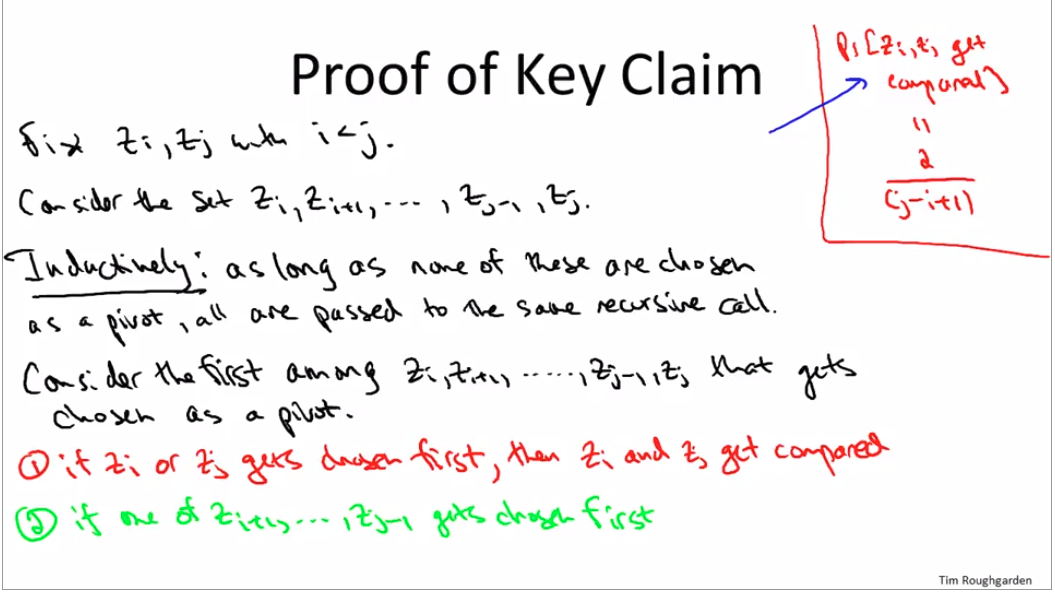 Proof of Key Claim
Pr[zi, zj get
compared]
=
2
(j-i+1)
Fix zi, zj with i<j.
Consider the set zi, zi+1, ..., zj-1, zj.
Inductively: as long as none of these are chosen
as a pivot, all are passed to the same recursive call.
Consider the first among zi, zi+1, ....., zj-1, zj that gets
chosen as a pivot.
① if zi or zj gets chosen first, then zi and zj get compared
② if one of zi+1, ..., zj-1 gets chosen first
Tim Roughgarden